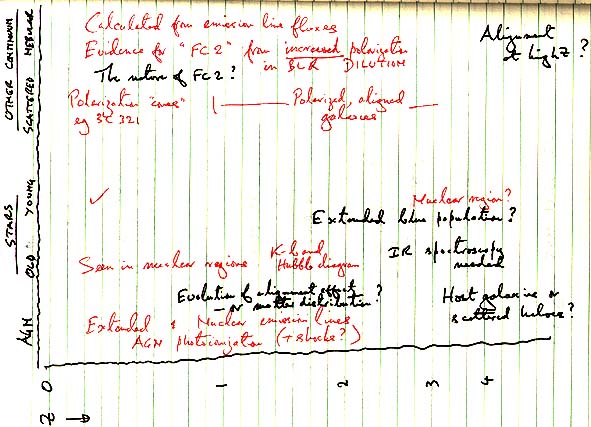 Calculated from emission line fluxes
Evidence for "FC2" from increased polarization
in BLR DILUTION
The nature of FC2?
Alignment
at high Z?
Polarization "cones"
eg 3C 321
Polarized, aligned
galaxies
✓
Nuclear region?
Extended blue population?
Seen in nuclear regions
K-band
Hubble diagram
IR spectroscopy
needed
Evolution of alignment effect
- or matter distribution?
Host galaxies or
scattered haloes?
Extended & Nuclear emission lines
AGN photoionization (+ shocks?)
OTHER CONTINUUM
SCATTERED NEBULAR
STARS
OLD YOUNG
AGN
0 1 2 3 4
Z →